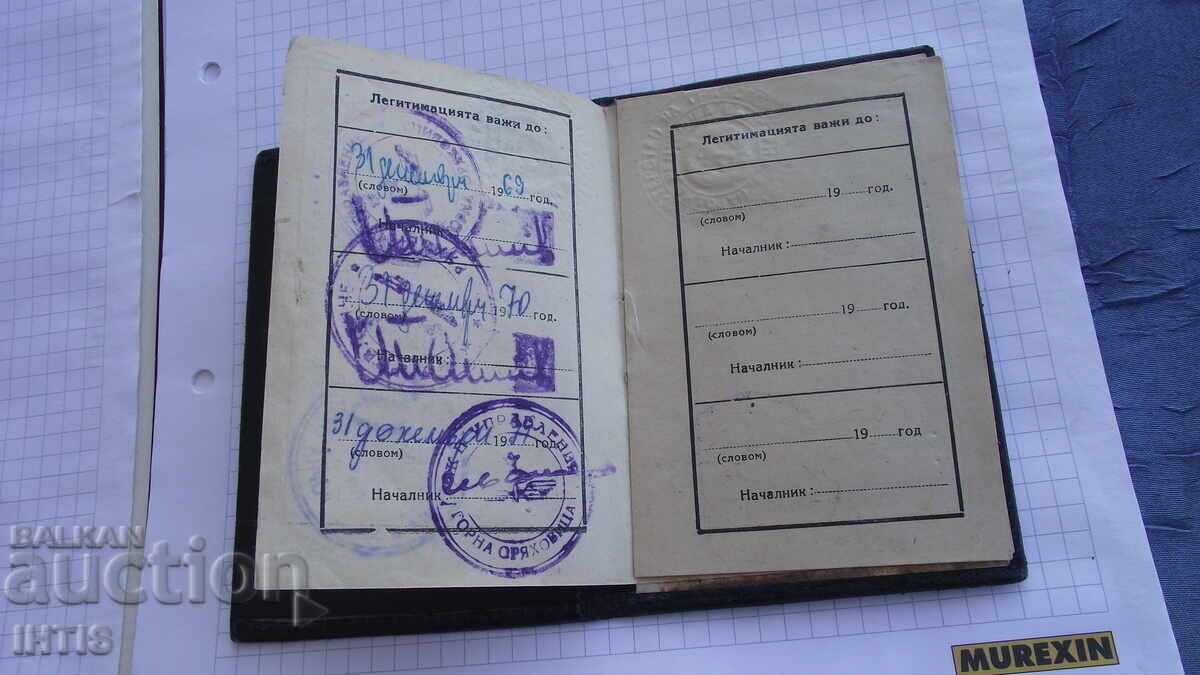 Легитимацията важи до:
31 декември 1969 год.
(словом)
Началник:
31 декември 1970 год.
(словом)
Началник:
31 декември 19 год.
(словом)
Началник
УПРАВЛЕНИЕ
ГОРНА ОРЯХОВИЦА
Легитимацията важи до:
19 год.
(словом)
Началник:
19 год.
(словом)
Началник:
19 год
(словом)
Началник:
BALKAN
auction
IHTIS
MUREXIN